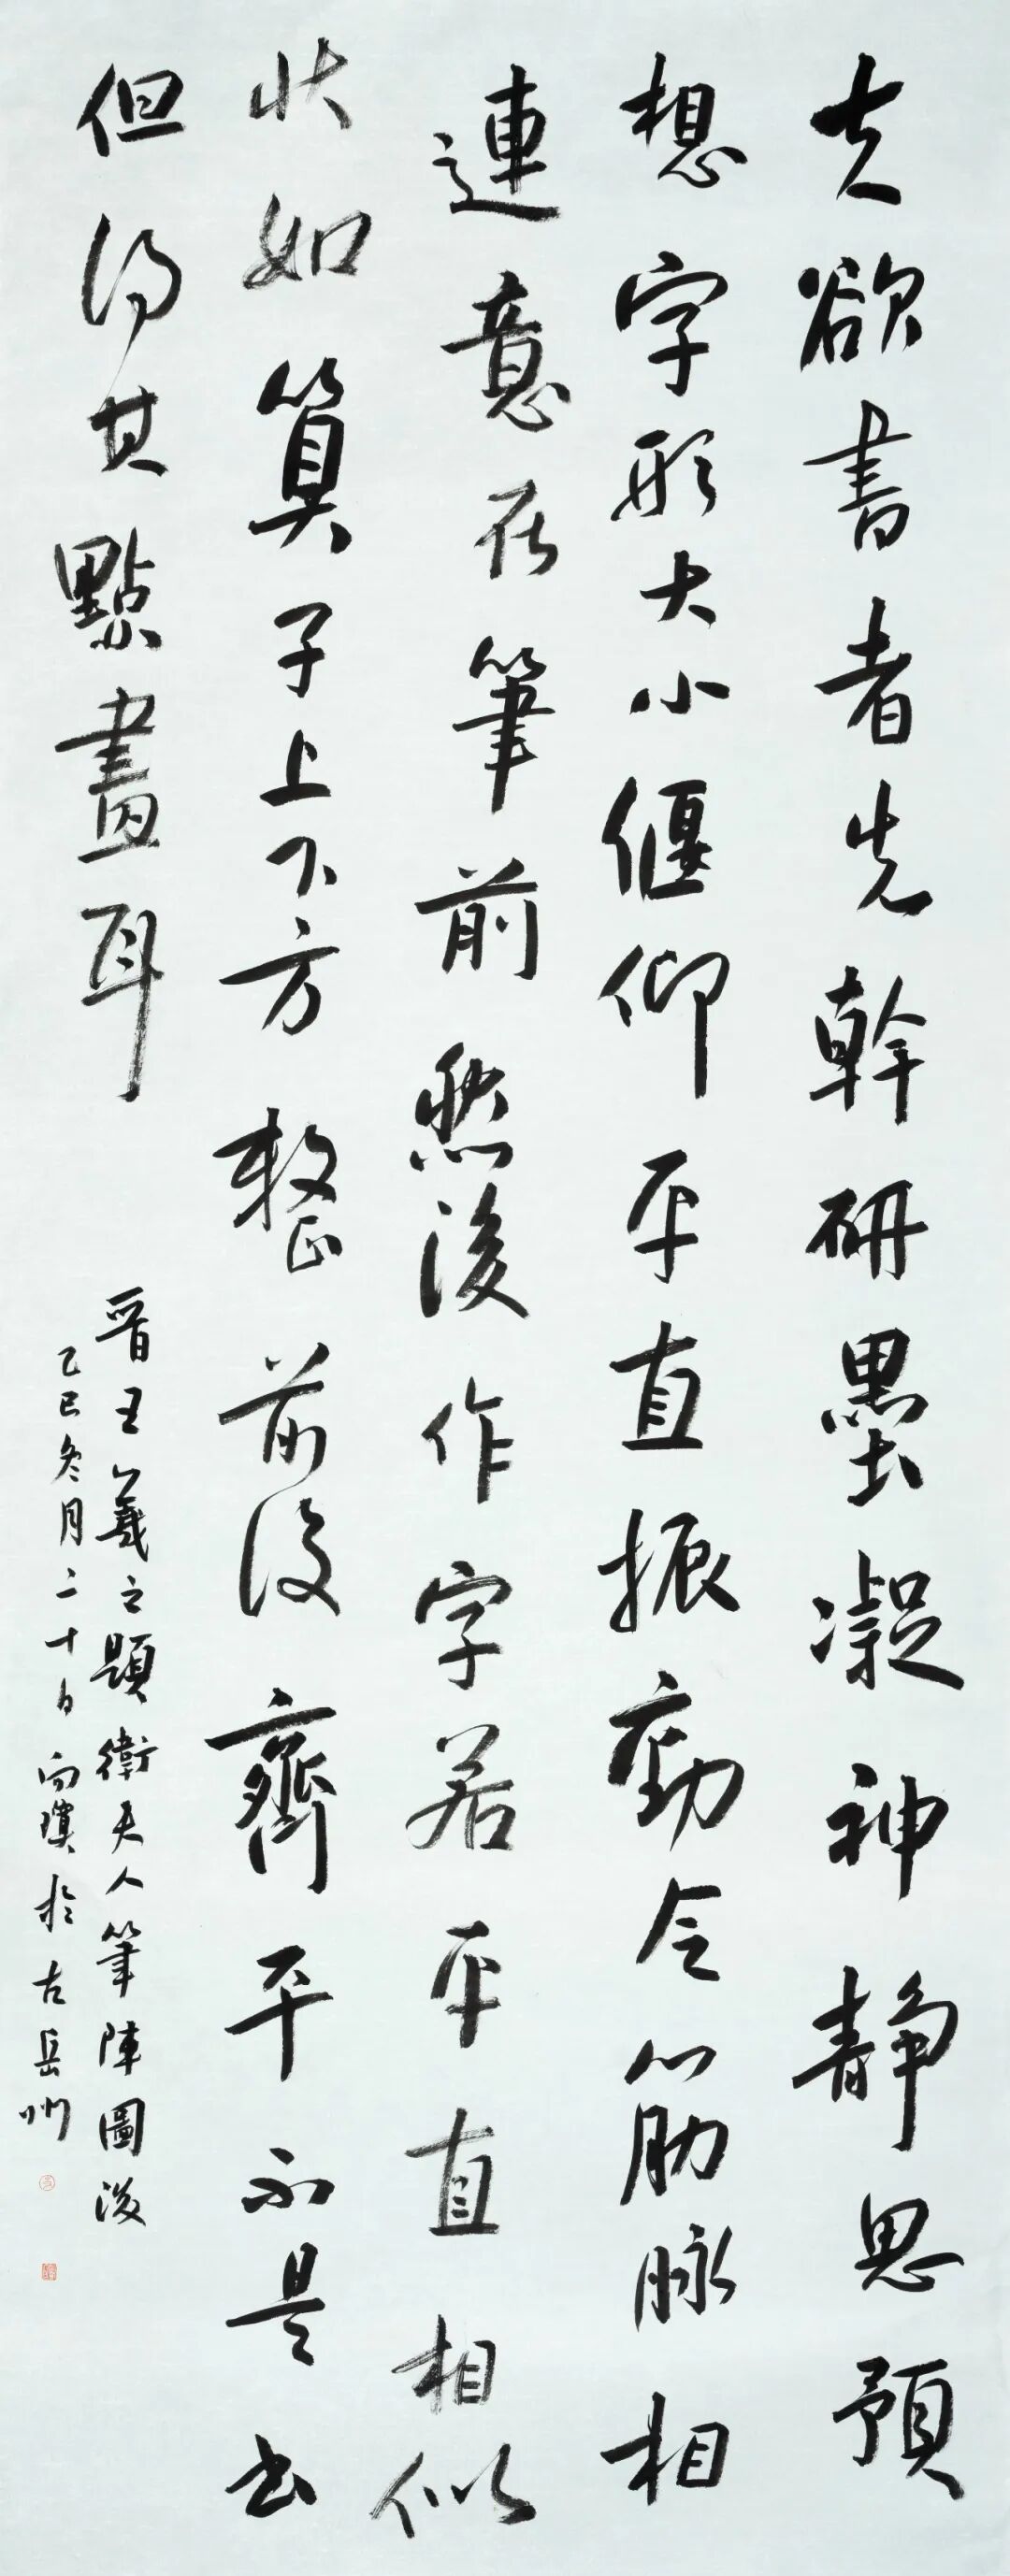 夫欲書者先幹研墨凝神靜思預
想字形大小偃仰平直振動令筋脉相
連意在筆前然後作字若平直相似
狀如筭子上下方整前後齊平不是书
但得其點畫耳
晉王羲之題衛夫人筆陣圖後
乙巳冬月二十日向瓆於古岳州